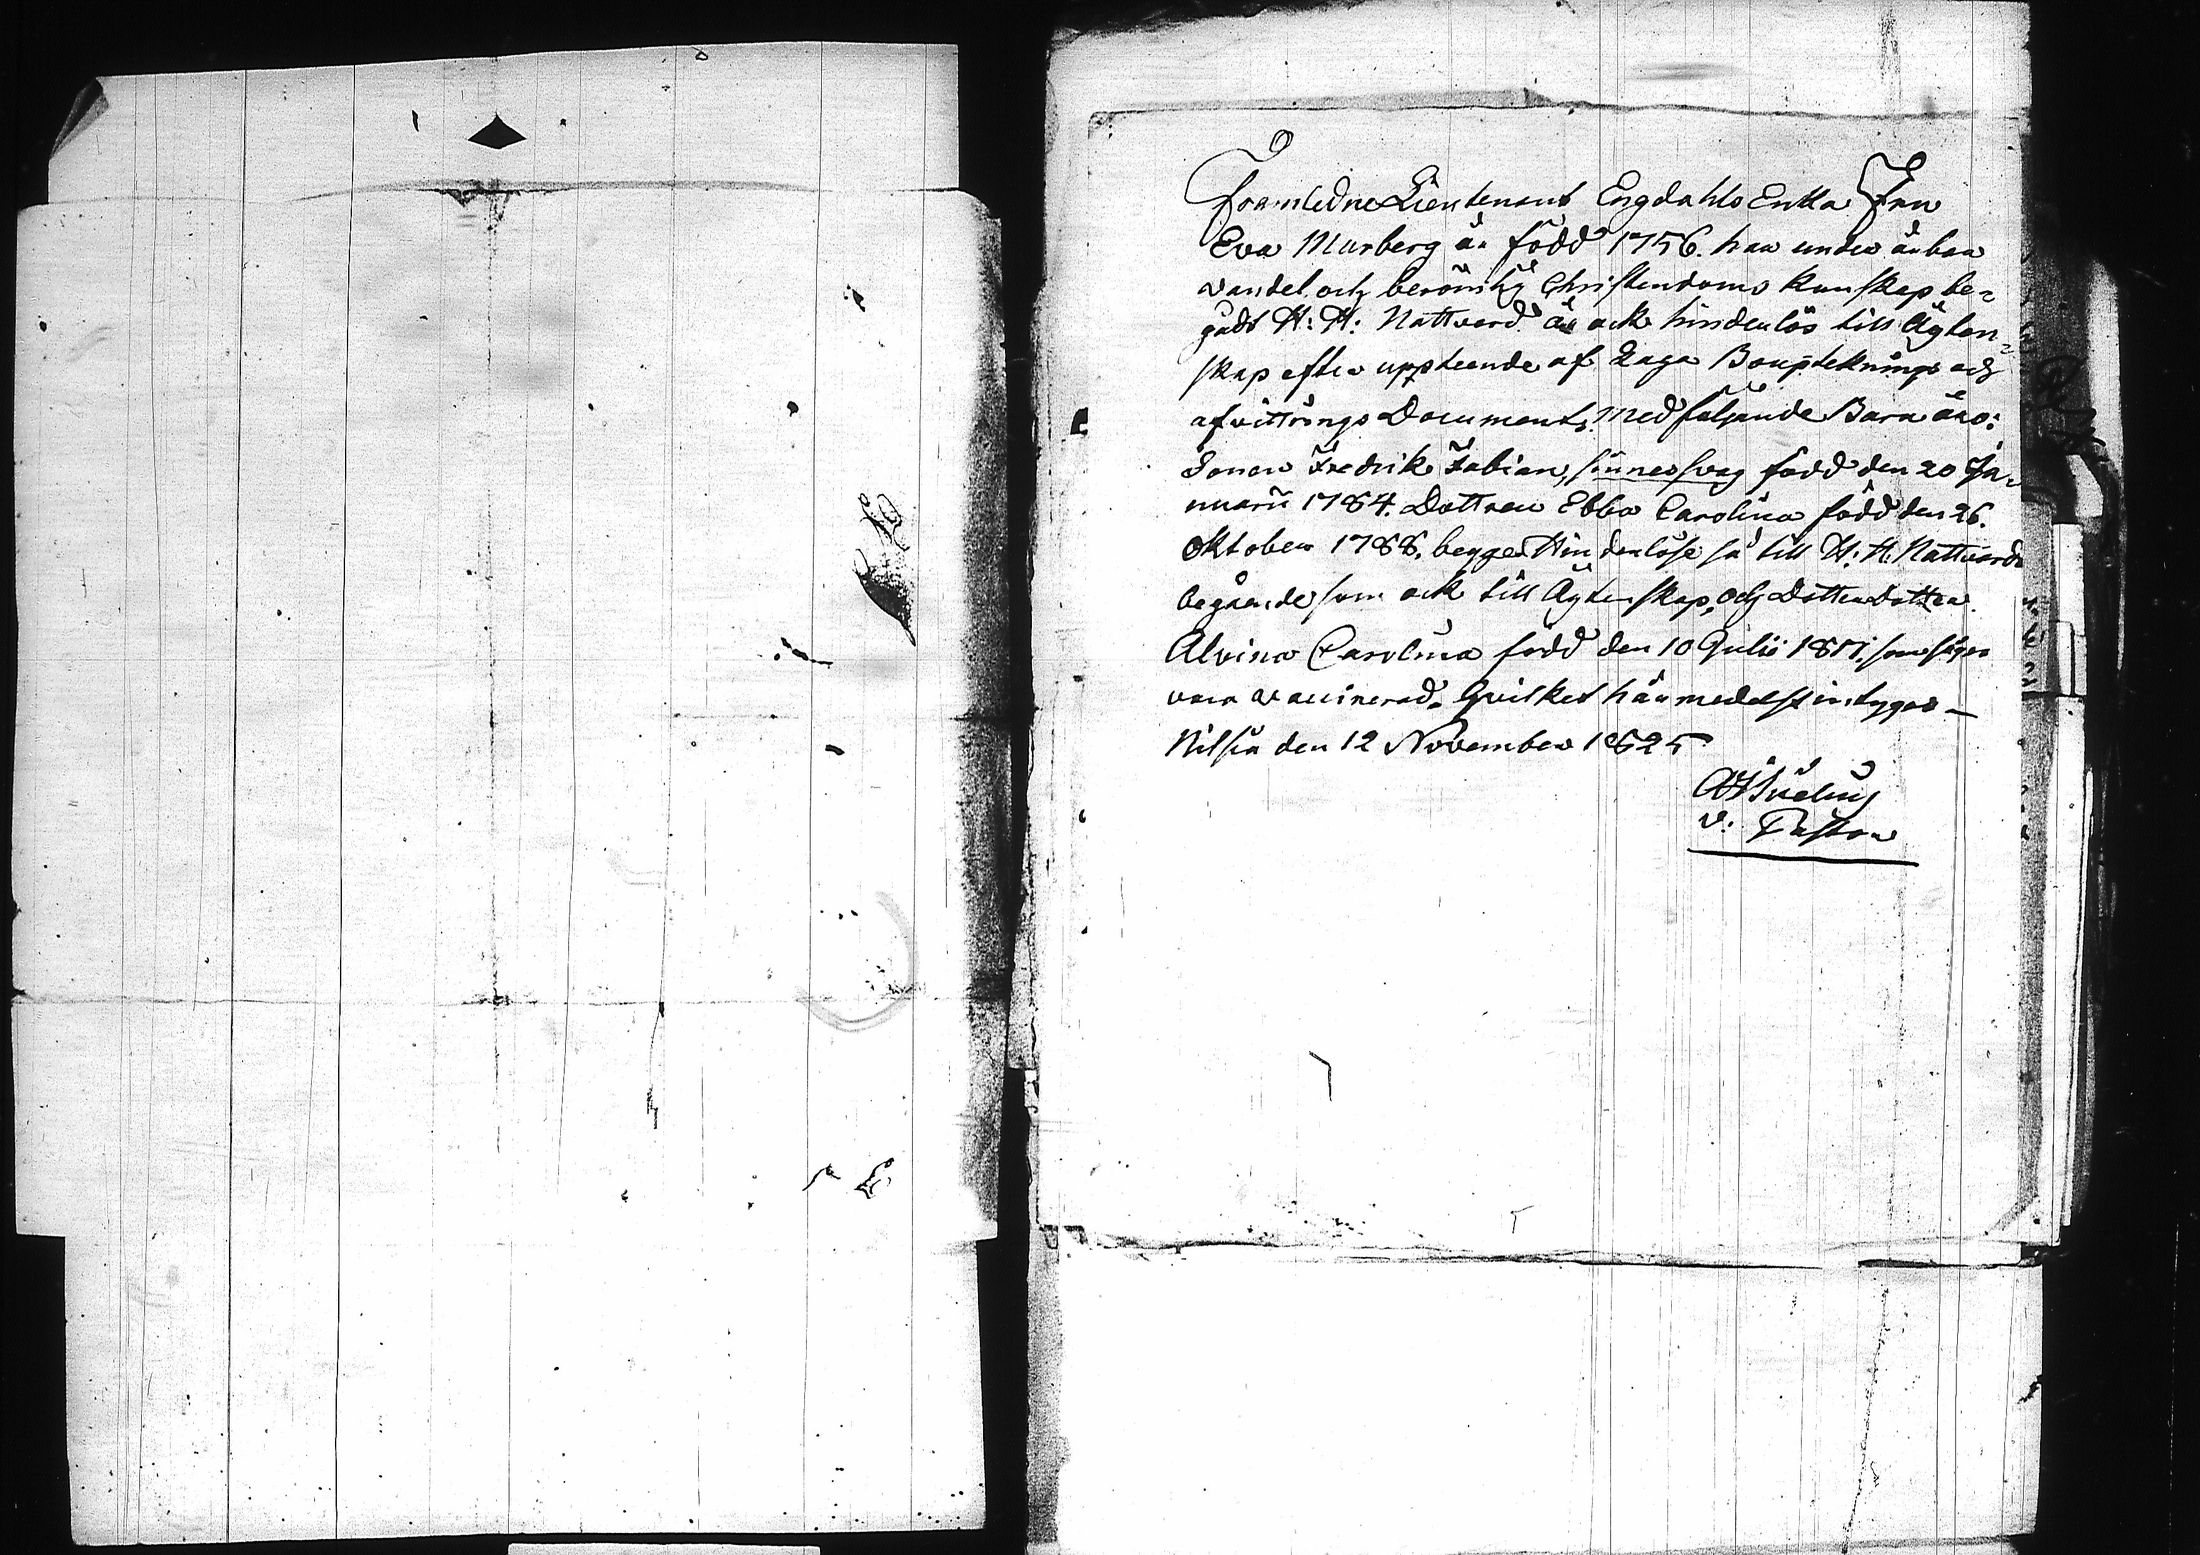 Framledne Lieutenant Engdahls Enka Fru
Eva Murberg är född 1756. har under ärbar
vandel och berömlig Christendoms kunskap be=
gådt H: H: Nattvard är ock hinderlös till Ägten=
skap efter uppteende af Laga Bouptekning och
afvittrings Document, Medföljande Barn äro:
Sonen Fredrik Fabian, sinnessvag född den 20 Ja=
nuarii 1784. Dottren Ebba Carolina född den 26.
Oktober 1788. begge Hinderlöse så till H: H. Nattvards
begående som ock till Ägtenskap, och DotterDotter
Alvina Carolina född den 10 Julii 1811, som säges
vara vaccinerad. Hvilket härmedelst intygas –
Nilsiä den 12 November 1825
v: Pastor